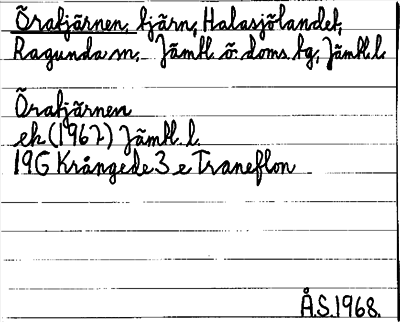 Öratjärnen, tjärn, Halasjölandet,
Ragunda sn, Jämtl. ö. doms. tg, Jämtl. l.
Öratjärnen
ek (1967) Jämtl. l.
19G Krångede 3 e Traneflon
Å.S. 1968.